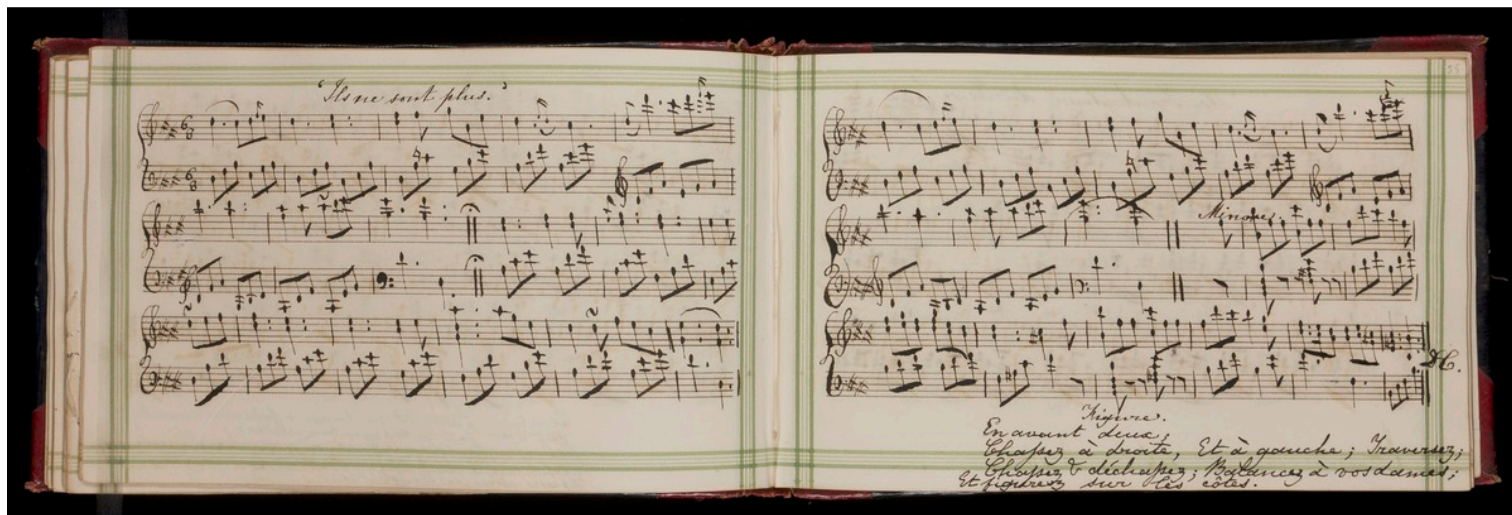 "Ils ne sont plus."
55
Minore.
D.C.
Figure.
En avant deux;
Chassez à droite, Et à gauche; Traversez;
Chassez & déchassez; Balancez à vos dames;
Et figurez sur les côtés.